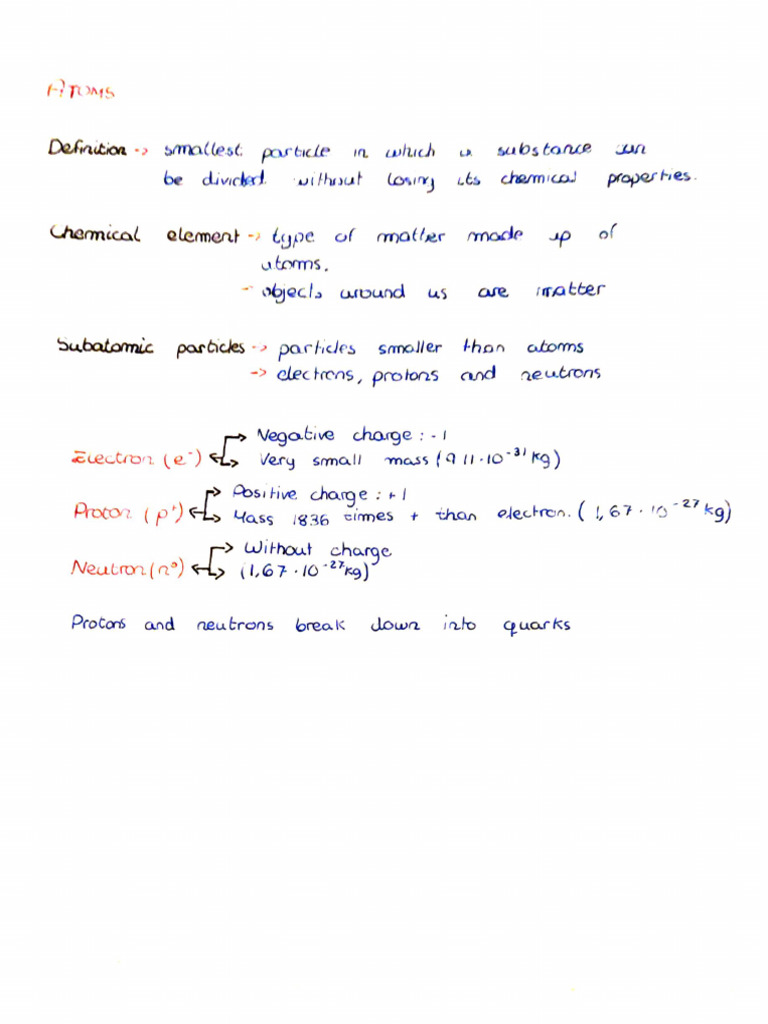 ATOMS
Definition -> smallest particle in which a substance can
be divided without losing its chemical properties.
Chemical element -> type of matter made up of
atoms.
- objects around us are matter
Subatomic particles -> particles smaller than atoms
-> electrons, protons and neutrons
Negative charge: -1
Electron (e⁻) Very small mass (9 11·10⁻³¹ kg)
Positive charge: +1
Proton (p⁺) Mass 1836 times + than electron. (1,67·10⁻²⁷ kg)
Without charge
Neutron (n⁰) (1,67·10⁻²⁷ kg)
Protons and neutrons break down into quarks